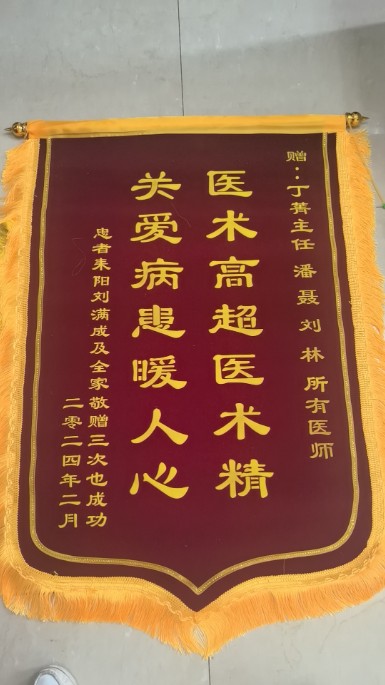 赠：丁菁主任 潘聂 刘林 所有医师
医术高超医术精
关爱病患暖人心
患者耒阳刘满成及全家敬赠三次也成功
二零二四年二月